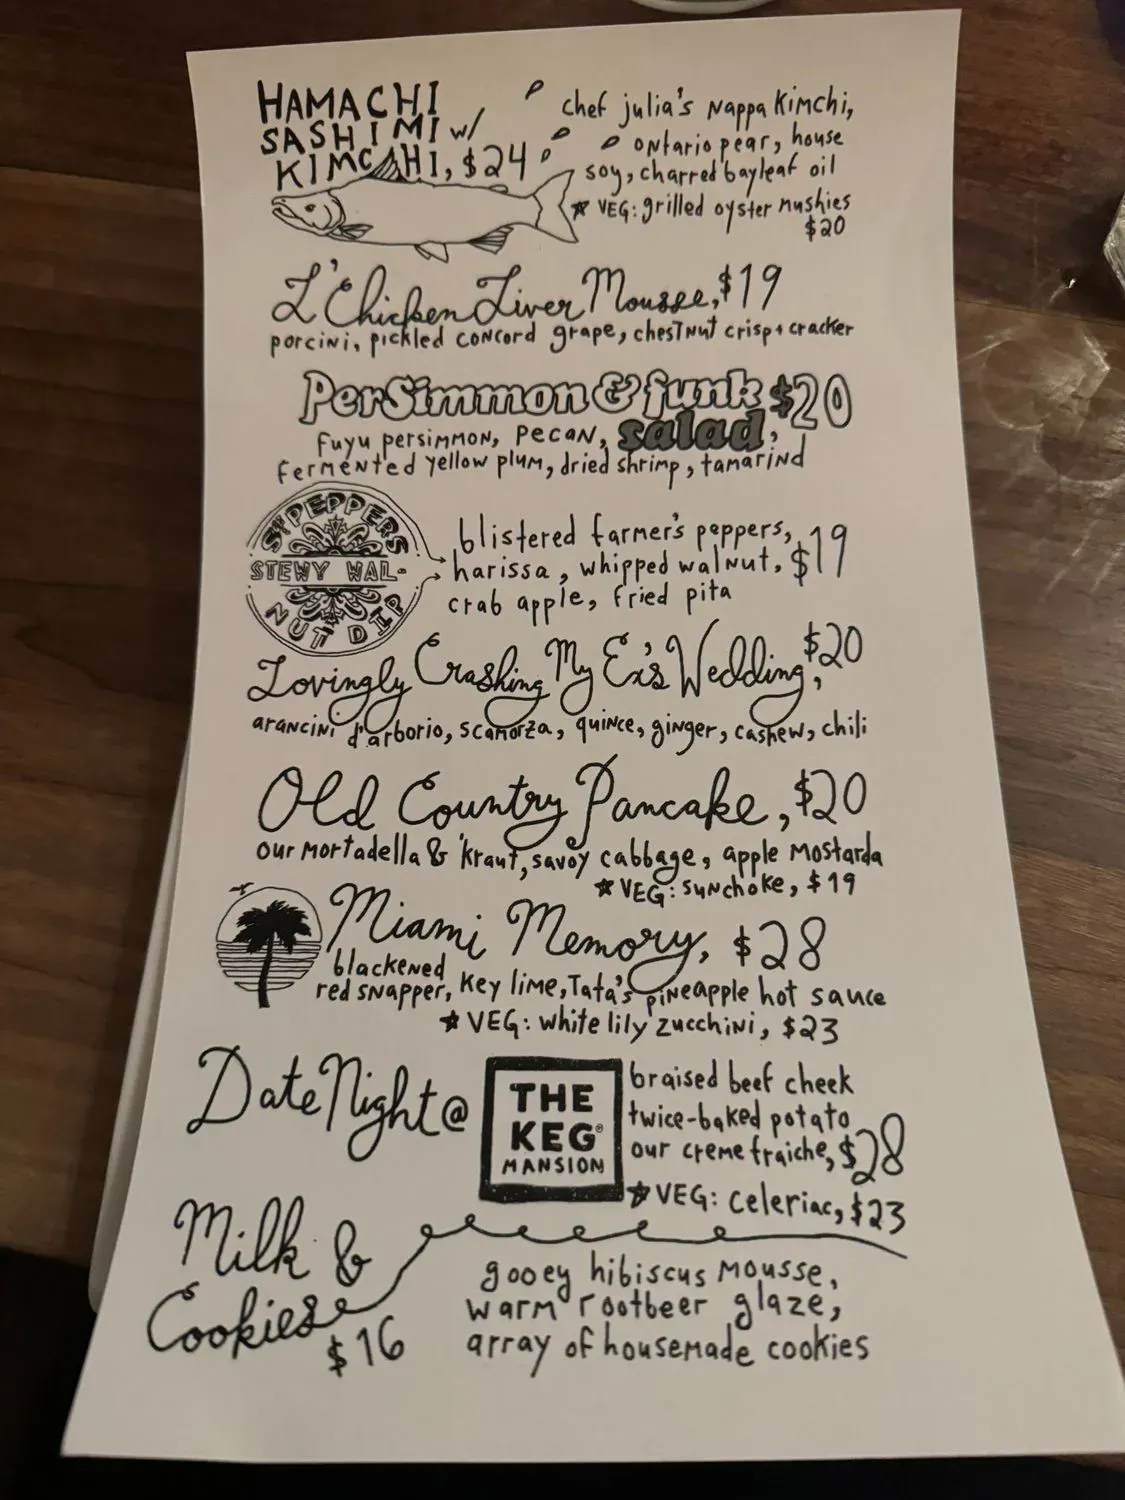 HAMACHI
SASHIMI w/
KIMCHI, $24
chef julia's Nappa Kimchi,
ontario pear, house
soy, charred bayleaf oil
★ VEG: grilled oyster mushies
$20
L'Chicken Liver Mousse, $19
porcini, pickled concord grape, chestnut crisp + cracker
PerSimmon & funk $20
salad,
fuyu persimmon, pecan,
fermented yellow plum, dried shrimp, tamarind
Sgt PEPPERS
STEWY WAL-
NUT DIP
blistered farmer's peppers,
harissa, whipped walnut, $19
crab apple, fried pita
Lovingly Crashing My Ex's Wedding, $20
arancini d'arborio, scamorza, quince, ginger, cashew, chili
Old Country Pancake, $20
our mortadella & 'kraut, savoy cabbage, apple mostarda
★ VEG: sunchoke, $19
Miami Memory, $28
blackened
red snapper, key lime, Tata's pineapple hot sauce
★ VEG: white lily zucchini, $23
Date Night @
THE
KEG®
MANSION
braised beef cheek
twice-baked potato
our creme fraiche, $28
★ VEG: celeriac, $23
Milk &
Cookies
$16
gooey hibiscus mousse,
warm rootbeer glaze,
array of housemade cookies